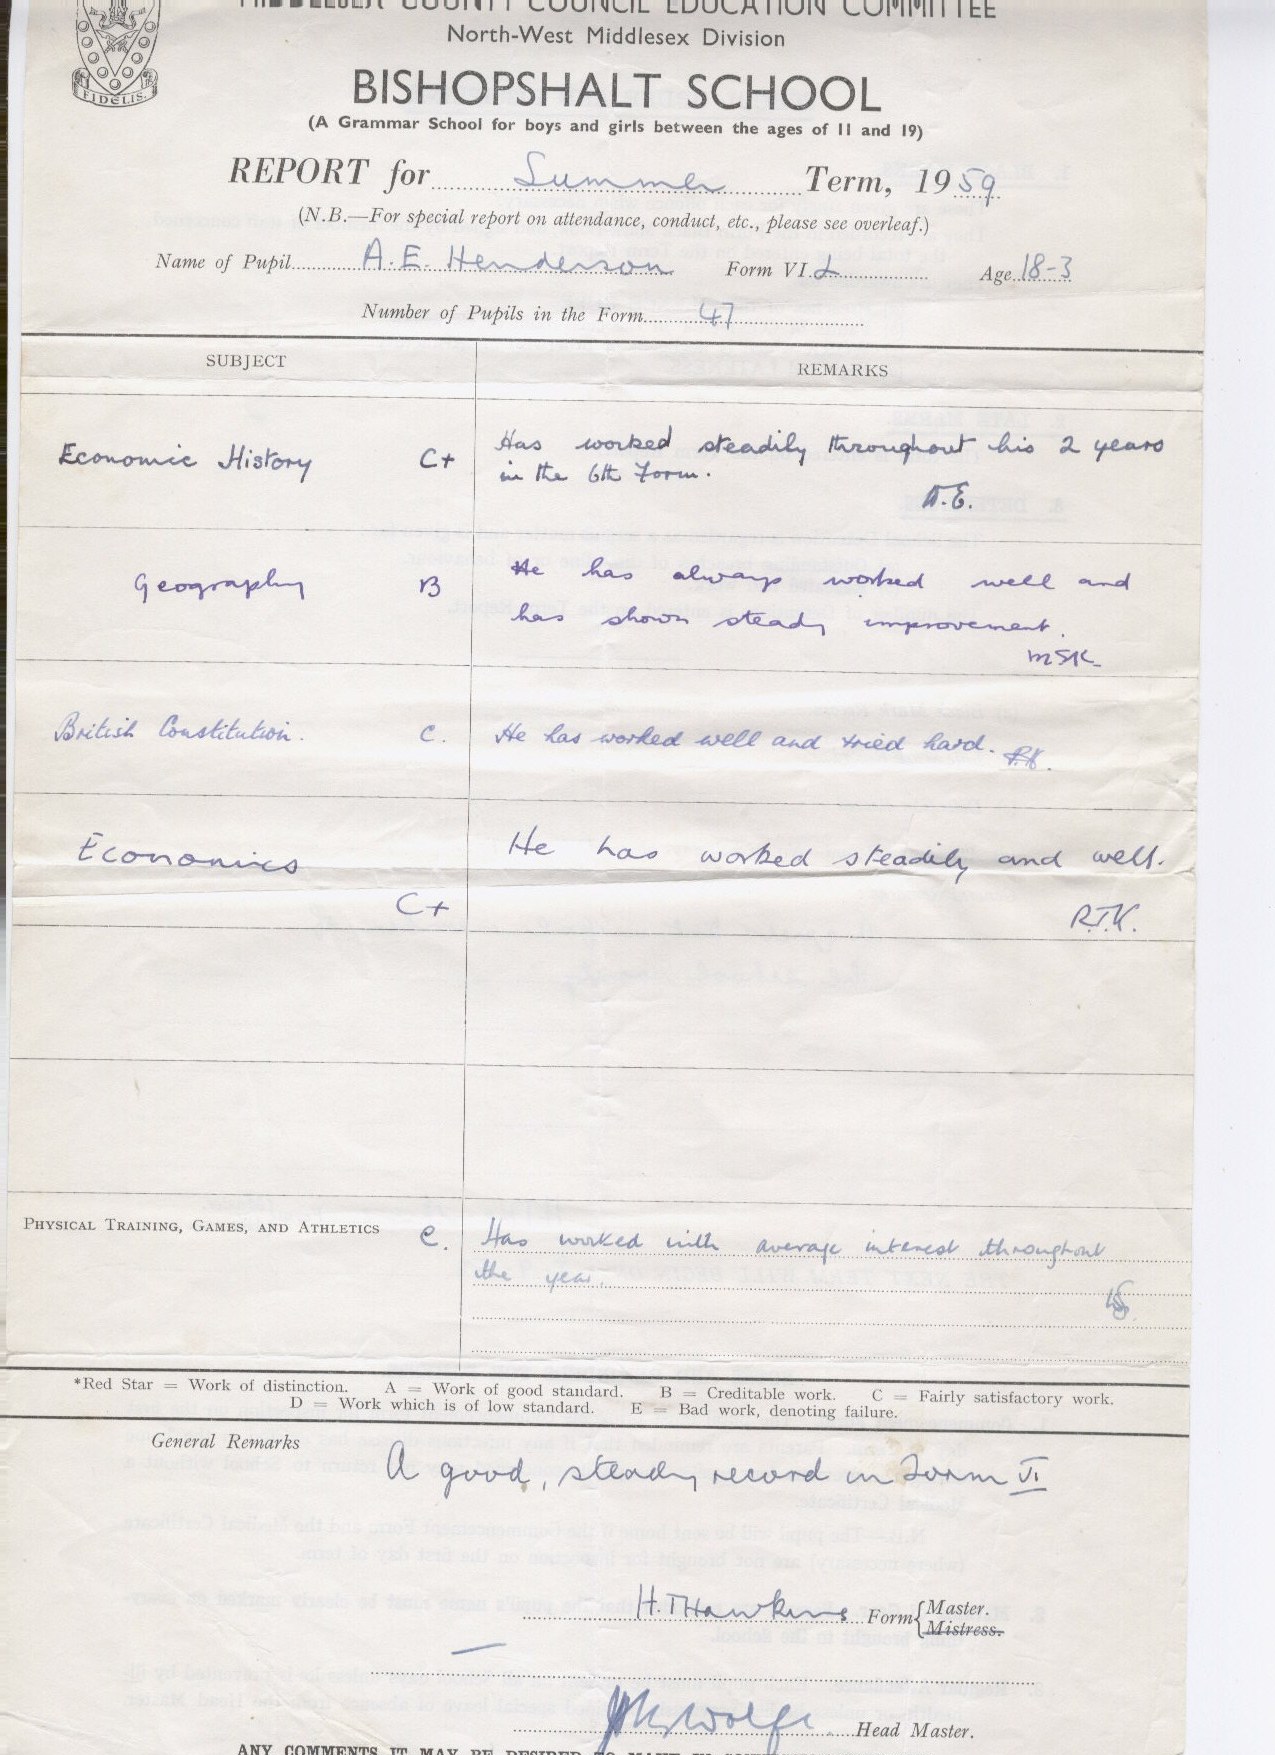 MIDDLESEX COUNTY COUNCIL EDUCATION COMMITTEE
North-West Middlesex Division
FIDELIS.
BISHOPSHALT SCHOOL
(A Grammar School for boys and girls between the ages of 11 and 19)
REPORT for Summer Term, 1959
(N.B.—For special report on attendance, conduct, etc., please see overleaf.)
Name of Pupil A. E. Henderson Form VI. L Age 18-3
Number of Pupils in the Form 47
SUBJECT REMARKS
Economic History C+ Has worked steadily throughout his 2 years
in the 6th Form.
A.E.
Geography B He has always worked well and
has shown steady improvement.
MSK
British Constitution. C. He has worked well and tried hard.
Economics He has worked steadily and well.
C+ R.T.K.
PHYSICAL TRAINING, GAMES, AND ATHLETICS C. Has worked with average interest throughout
the year.
*Red Star = Work of distinction. A = Work of good standard. B = Creditable work. C = Fairly satisfactory work.
D = Work which is of low standard. E = Bad work, denoting failure.
General Remarks A good, steady record in Form VI
H.T Hawkins Form { Master.
Mistress.
Wolfe Head Master.
ANY COMMENTS IT MAY BE DESIRED TO MAKE IN